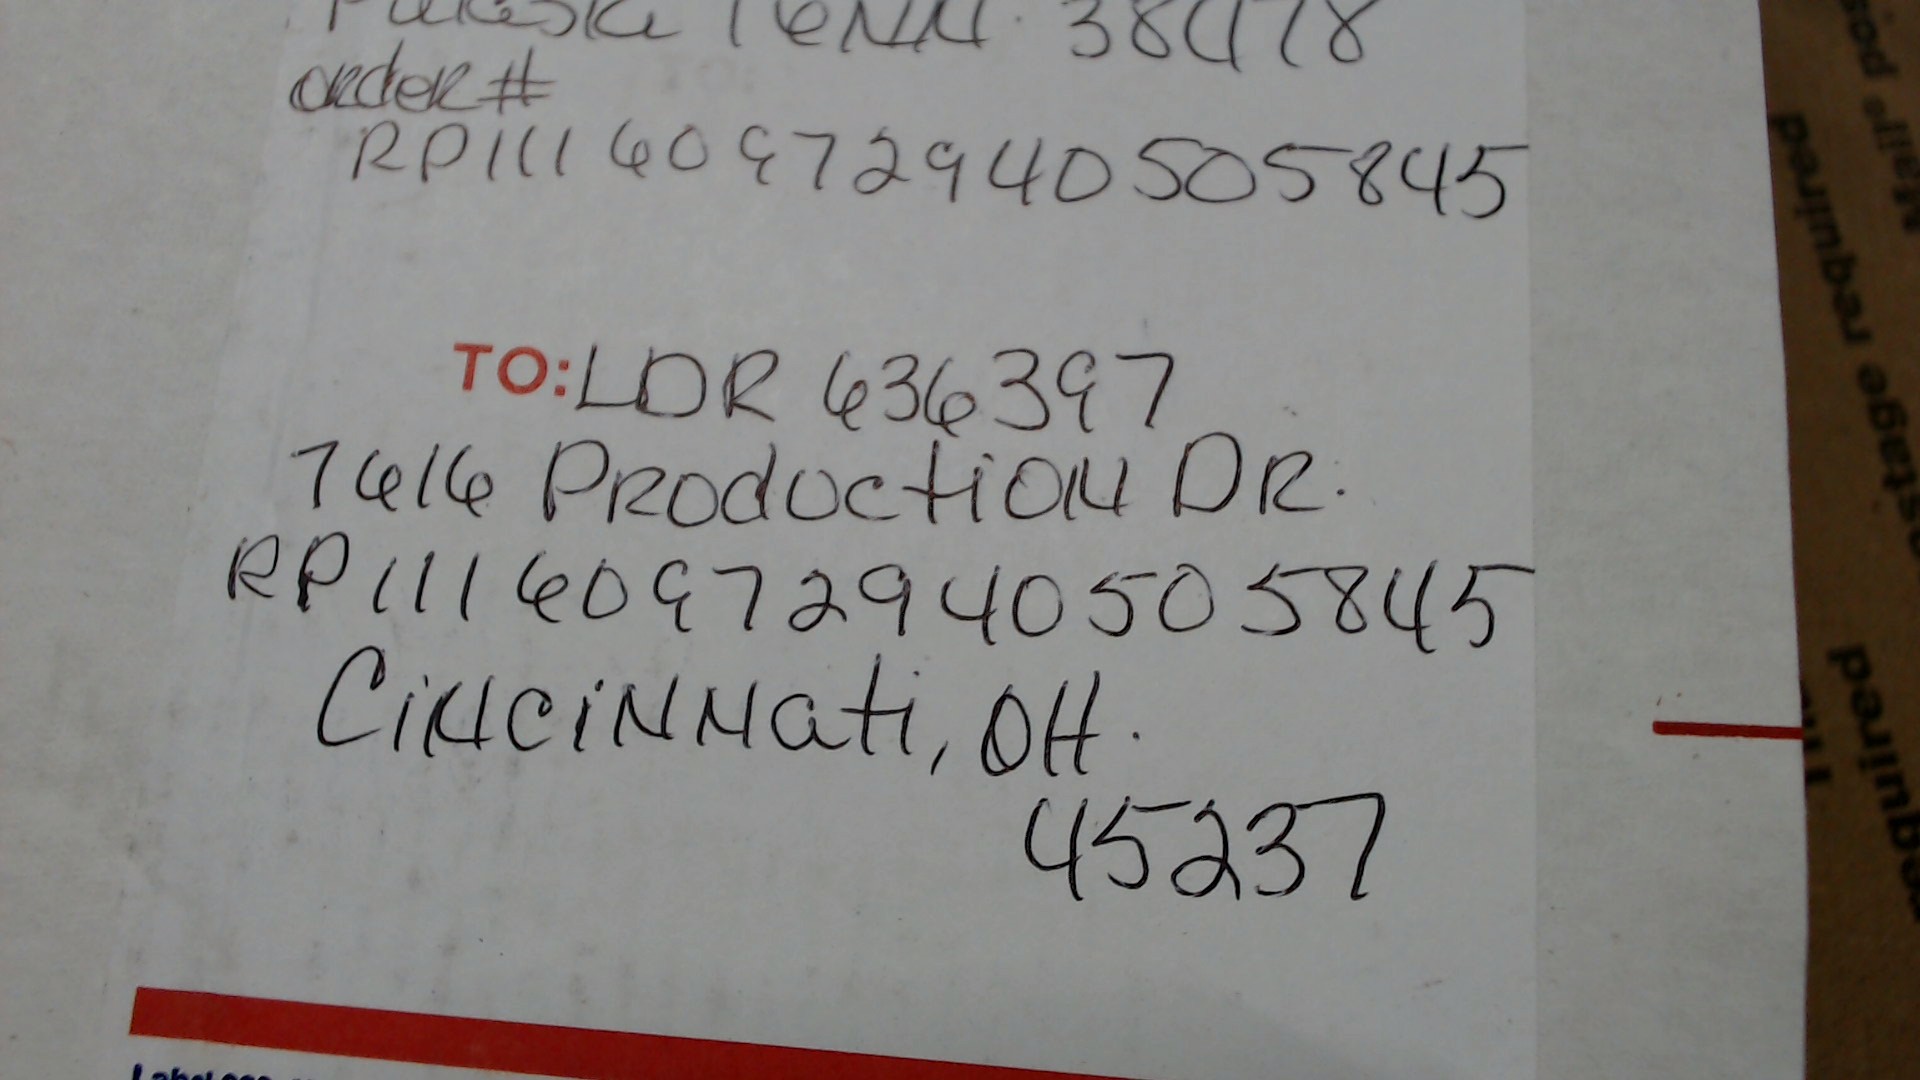 Pulaski Tenn. 38478
order #
RP1116097294050 5845
TO: LDR 636397
7616 Production DR.
RP111609729405058 45
Cincinnati, OH.
45237
postage required
Mail
required